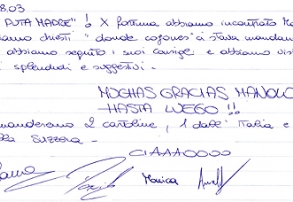 8.03
PUTA MADRE" ! X fortuna abbiamo incontrato
chiesti "donde cojones" ci stava mandan
abbiamo seguito i suoi consigli e abbiamo vis
splendidi e suggestivi.
MUCHAS GRACIAS MANOLO
HASTA LUEGO !!
manderemo 2 cartoline, 1 dall'Italia e
Svizzera
CIAAAOOOO
Monica